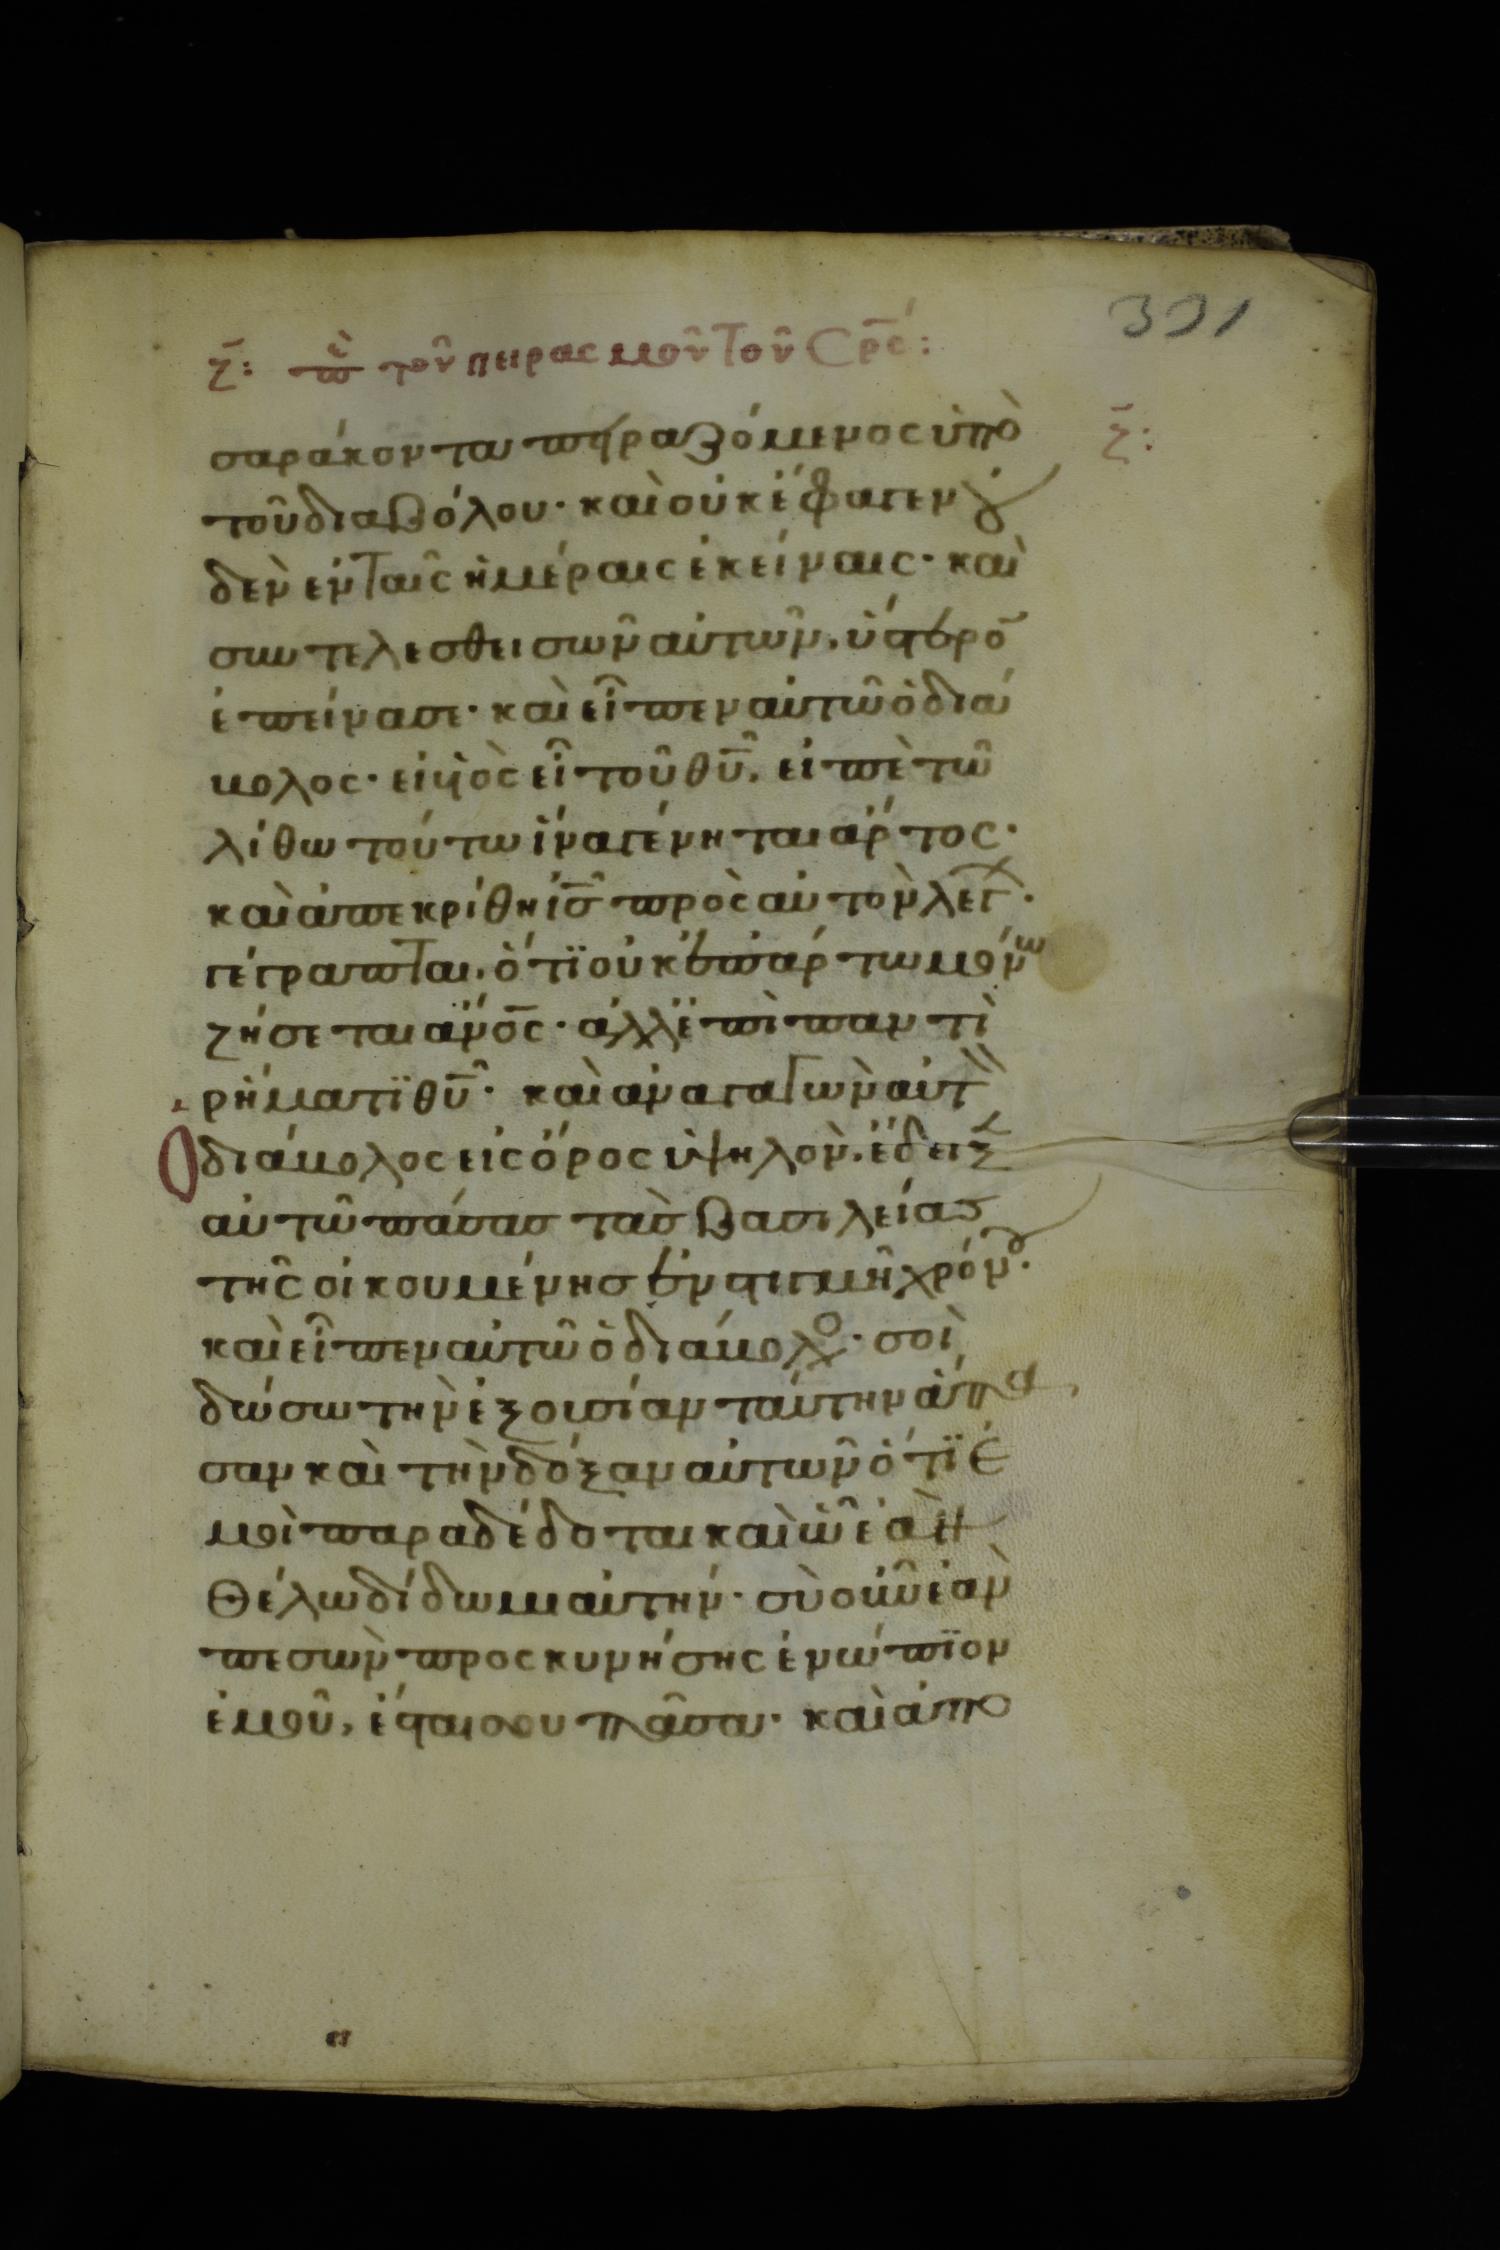 331
ζ̄: πε τοῦ πειρασμοῦ τοῦ Σρ̅σ́:
ζ̄:
σαράκοντα πειραζόμενος ὑπὸ
τοῦ διαβόλου· καὶ οὐκ ἔφαγεν οὐ
δὲν ἐν ταῖς ἡμέραις ἐκείναις· καὶ
συντελεσθεισῶν αὐτῶν, ὕστερο̅
ἐπείνασε· καὶ εἶπεν αὐτῶ ὁ διά
βολος· εἰ υἱὸς εἶ τοῦ θῡ, εἰπὲ τῶ
λίθω τούτω ἵνα γένηται ἄρτος·
καὶ ἀπεκρίθη ἰ̅σ πρὸς αὐτὸν λέγ·
γέγραπται, ὅτϊ οὐκ ἐπ' ἄρτω μόνω
ζήσεται ἄν̅ο̅ς· ἀλλ' ἐπὶ παντὶ
ῥήματϊ θῡ· καὶ ἀναγαγὼν αὐτ
Ο διάβολος εἰς ὄρος ὑψηλὸν, ἔδειξ
αὐτῶ πάσας τὰς βασιλείας
τῆς οἰκουμένης ἐν στιγμῆ χρόν·
καὶ εἶπεν αὐτῶ ὁ διάβολο· σοὶ
δώσω τὴν ἐξουσίαν ταύτην ἅπα
σαν καὶ τὴν δόξαν αὐτῶν ὅτϊ ἐ
μοὶ παραδέδοται καὶ ὧ ἐὰν
θέλω δίδωμι αὐτήν· σὺ οὖν ἐὰν
πεσὼν προσκυνήσης ἐνώπϊον
ἐμοῦ, ἔσται σου πᾶσα· καὶ ἀπο